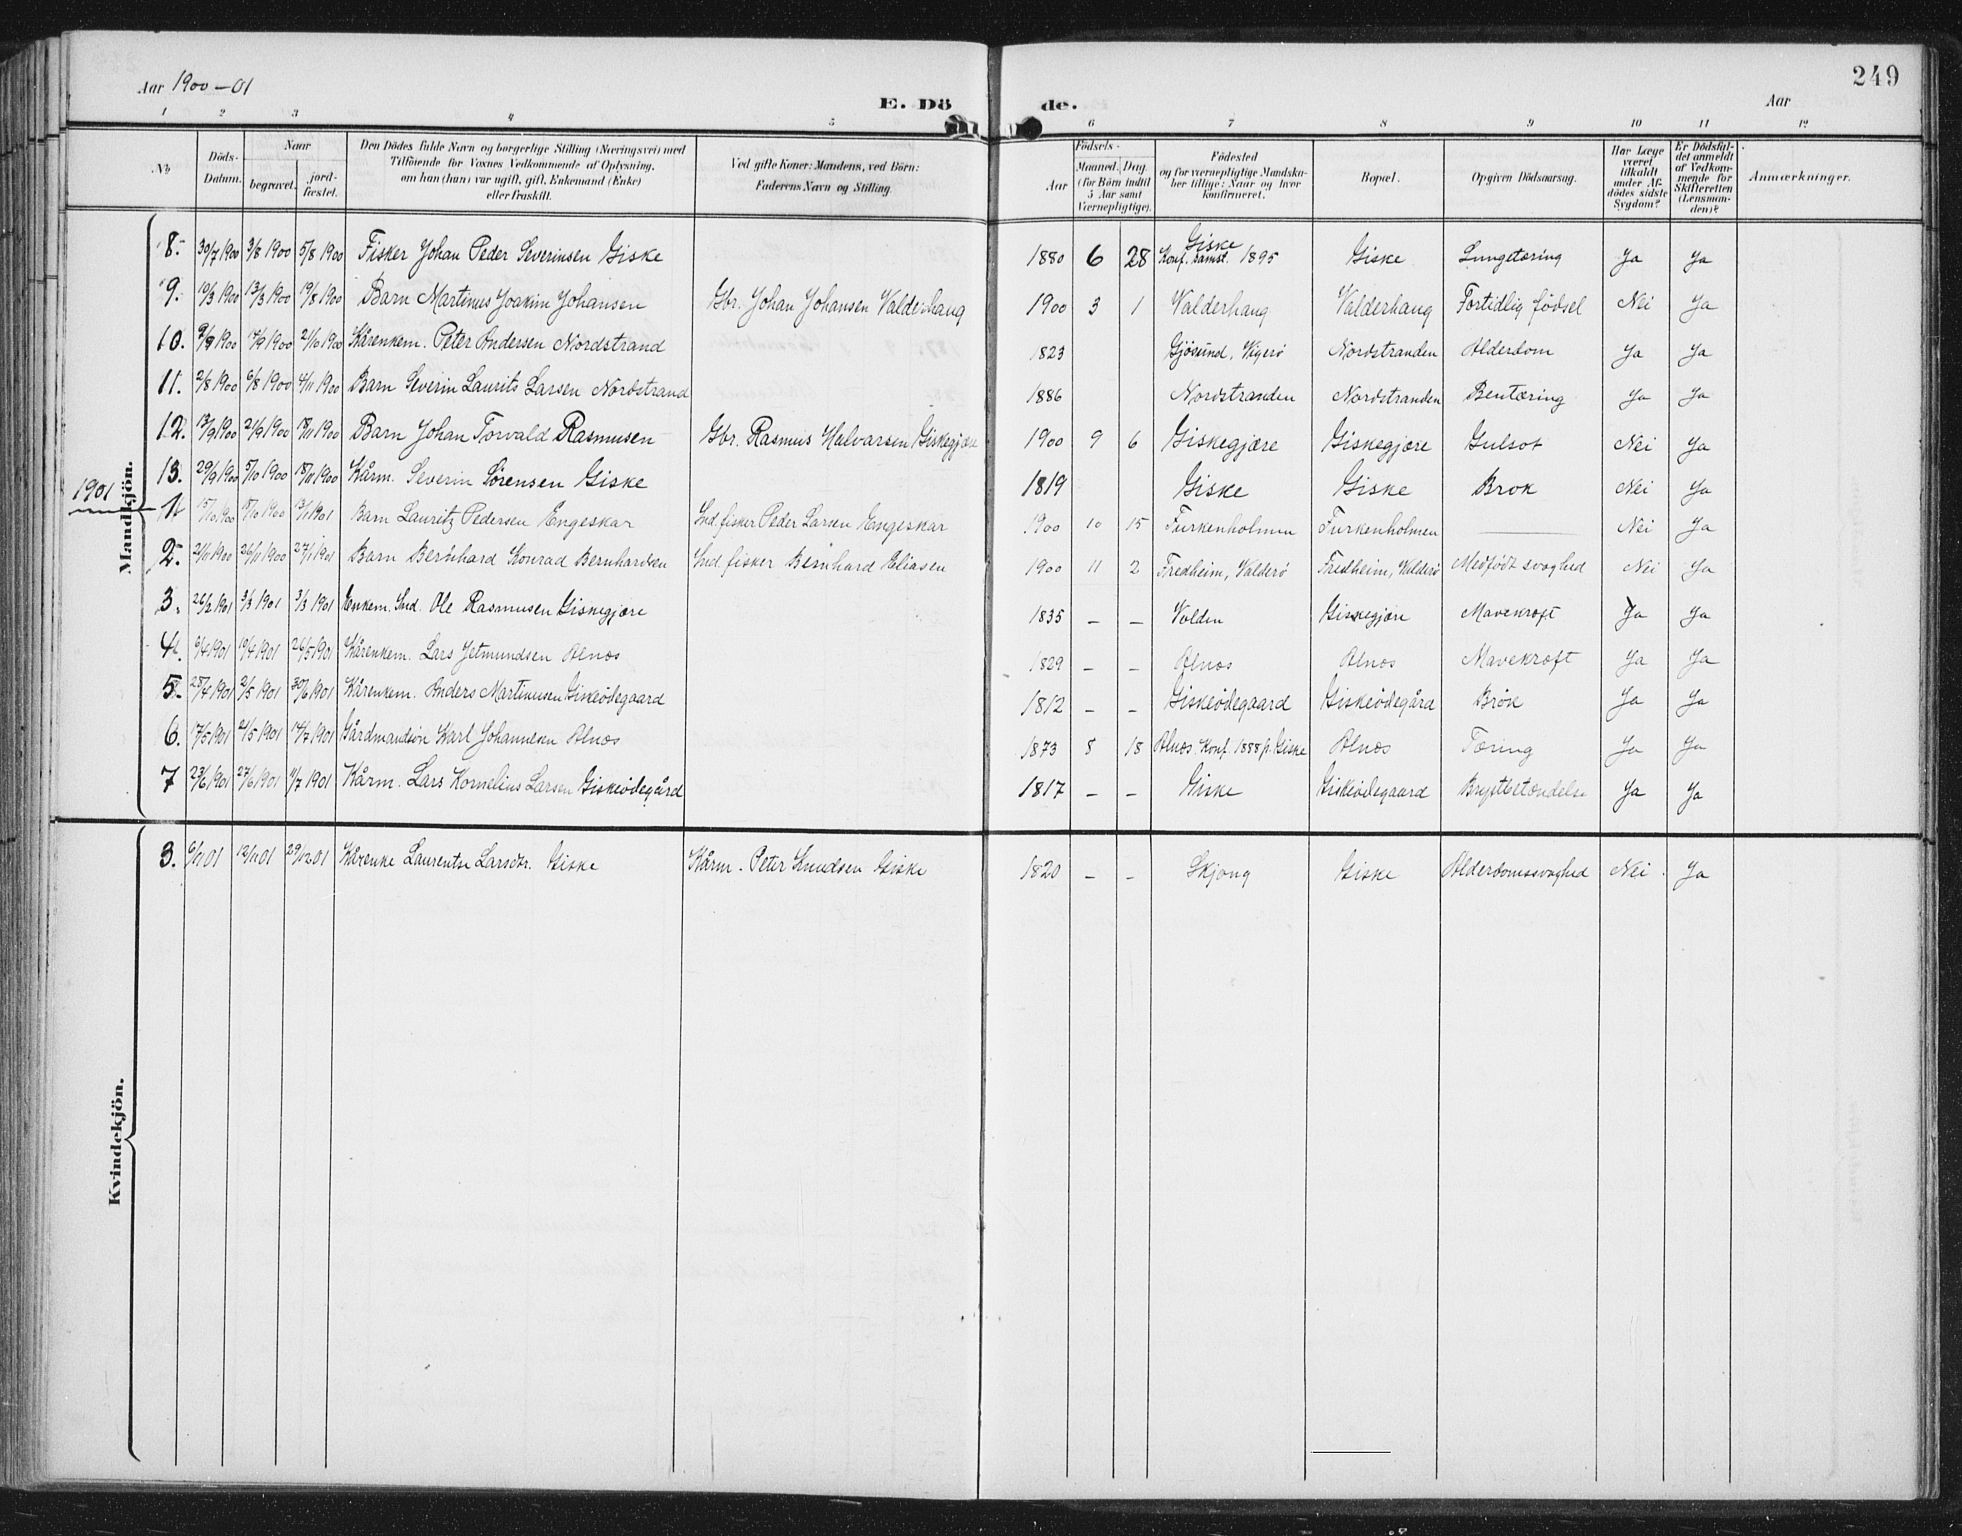 Aar 1900-01
E. Dö de.
Aar
249
1 2 3 4 5 6 7 8 9 10 11 12
No
Döds-Datum.
Naar
begravet.
jord-fæstet.
Den Dödes fulde Navn og borgerlige Stilling (Næringsvei) med Tilföiende for Voxnes Vedkommende af Oplysning, om han (hun) var ugift, gift, Enkemand (Enke) eller fraskilt.
Ved gifte Koner: Mandens, ved Börn: Faderens Navn og Stilling.
Födsels-
Aar
Maaned. Dag. (for Börn indtil 5 Aar samt Værnepligtige).
Födested og for værnepligtige Mandskaber tillige: Naar og hvor konfirmeret.
Bopæl.
Opgiven Dödsaarsag.
Har Læge været tilkaldt under Afdödes sidste Sygdom?
Er Dödsfaldet anmeldt af Vedkommende for Skifteretten (Lensmanden)?
Anmærkninger.
Mandkjön.
8. 30/7 1900 3/8 1900 5/8 1900 Fisker Johan Peder Severinsen Giske 1880 6 28 Giske Konf. samst. 1895 Giske Lungetæring Ja Ja
9. 10/3 1900 13/3 1900 19/8 1900 Barn Martinus Joakim Johansen Gbr. Johan Johansen Valderhaug 1900 3 1 Valderhaug Valderhaug Fortidlig födsel Nei Ja
10. 9/9 1900 14/9 1900 21/10 1900 Kårenkem. Peter Andersen Nordstrand 1823 Gjösund, Vigerö Nordstranden Alderdom Ja Ja
11. 2/8 1900 6/8 1900 4/11 1900 Barn Severin Laurits Larsen Nordstrand 1886 Nordstranden Nordstranden Bentæring Ja Ja
12. 13/9 1900 21/9 1900 18/11 1900 Barn Johan Torvald Rasmusen Gbr. Rasmus Halvarsen Giskegjære 1900 9 6 Giskegjære Giskegjære Gulsot Nei Ja
13. 29/9 1900 5/10 1900 18/11 1900 Kårm. Severin Sörensen Giske 1819 Giske Giske Brok Nei Ja
1901
1. 15/10 1900 18/10 1900 13/1 1901 Barn Lauritz Pedersen Engeskar Ind. fisker Peder Larsen Engeskar 1900 10 15 Furkenholmen Furkenholmen — Nei Ja
2. 21/11 1900 26/11 1900 27/1 1901 Barn Bernhard Konrad Bernhardsen Ind. fisker Bernhard Eliasen 1900 11 2 Fredheim, Valderö Fredheim, Valderö Medfödt svaghed Nei Ja
3. 26/2 1901 3/3 1901 3/3 1901 Enkem. Ind. Ole Rasmusen Giskegjære 1835 - - Valden Giskegjære Mavekræft Ja Ja
4. 6/4 1901 19/4 1901 26/5 1901 Kårenkem. Lars Jetmundsen Alnæs 1829 - - Alnæs Alnæs Mavekræft Ja Ja
5. 25/4 1901 2/5 1901 30/6 1901 Kårenkem. Anders Martinusen Giskeödegaard 1812 - - Giskeödegaard Giskeödegård Brök Ja Ja
6. 17/5 1901 21/5 1901 14/7 1901 Gårdmandsön Karl Johannesen Alnæs 1873 5 18 Alnæs. Konf. 1888 p. Giske Alnæs Tæring Ja Ja
7 23/6 1901 27/6 1901 11/7 1901 Kårm. Lars Kornelius Larsen Giskeödegård 1817 - - Giske Giskeödegaard Brystbetændelse Ja Ja
Kvindekjön.
3. 6/11 01 12/11 01 29/12 01 Kårenke Laurentse Larsdtr. Giske Kårm. Peter Knudsen Giske 1820 - - Skjong Giske Alderdomssvaghed Nei Ja